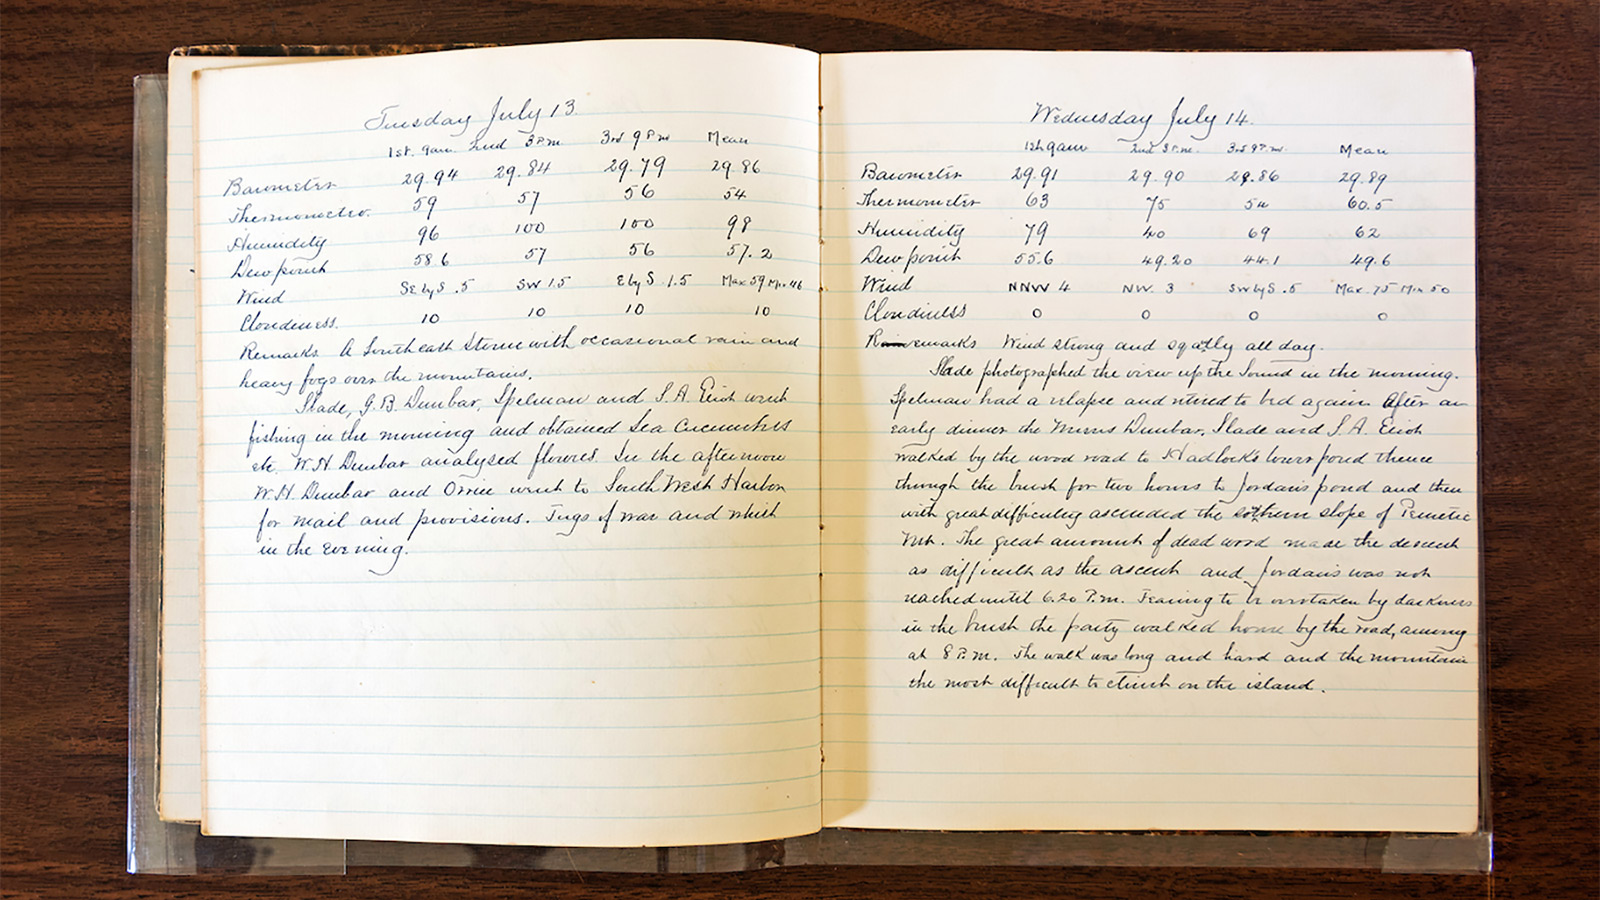 Tuesday July 13.
1st. 9am. 2nd 3 P.m. 3rd 9 P.m Mean
Barometer 29.94 29.84 29.79 29.86
Thermometer. 59 57 56 54
Humidity 96 100 100 98
Dew point 58.6 57 56 57.2
Wind SE by S .5 SW 1.5 E by S 1.5 Max 59 Min 46
Cloudiness. 10 10 10 10
Remarks A Southeast Storm with occasional rain and
heavy fogs over the mountains.
Slade, G.B. Dunbar, Spelman and S.A. Eliot went
fishing in the morning and obtained Sea Cucumbers
etc. W.H. Dunbar analysed flowers. In the afternoon
W.H. Dunbar and Orrin went to South West Harbor
for mail and provisions. Tugs of war and whist
in the evening.
Wednesday July 14.
1st 9am 2nd 3 P.m. 3rd 9 P.m. Mean
Barometer 29.91 29.90 29.86 29.89
Thermometer 63 75 60.5
Humidity 79 40 69 62
Dew point 55.6 49.20 44.1 49.6
Wind NNW 4 NW. 3 SW by S .5 Max. 75 Min 50
Cloudiness 0 0 0 0
Remarks Wind strong and squally all day.
Slade photographed the view up the Sound in the morning.
Spelman had a relapse and retired to bed again. After an
early dinner the Messrs Dunbar, Slade and S.A. Eliot
walked by the wood road to Hadlock's lower pond thence
through the brush for two hours to Jordan's pond and then
with great difficulty ascended the southern slope of Pemetic
Mt. The great amount of dead wood made the descent
as difficult as the ascent and Jordan's was not
reached until 6.20 P.m. Fearing to be overtaken by darkness
in the brush the party walked home by the road,
at 8 P.m. The walk was long and hard and the mountain
the most difficult to climb on the island.